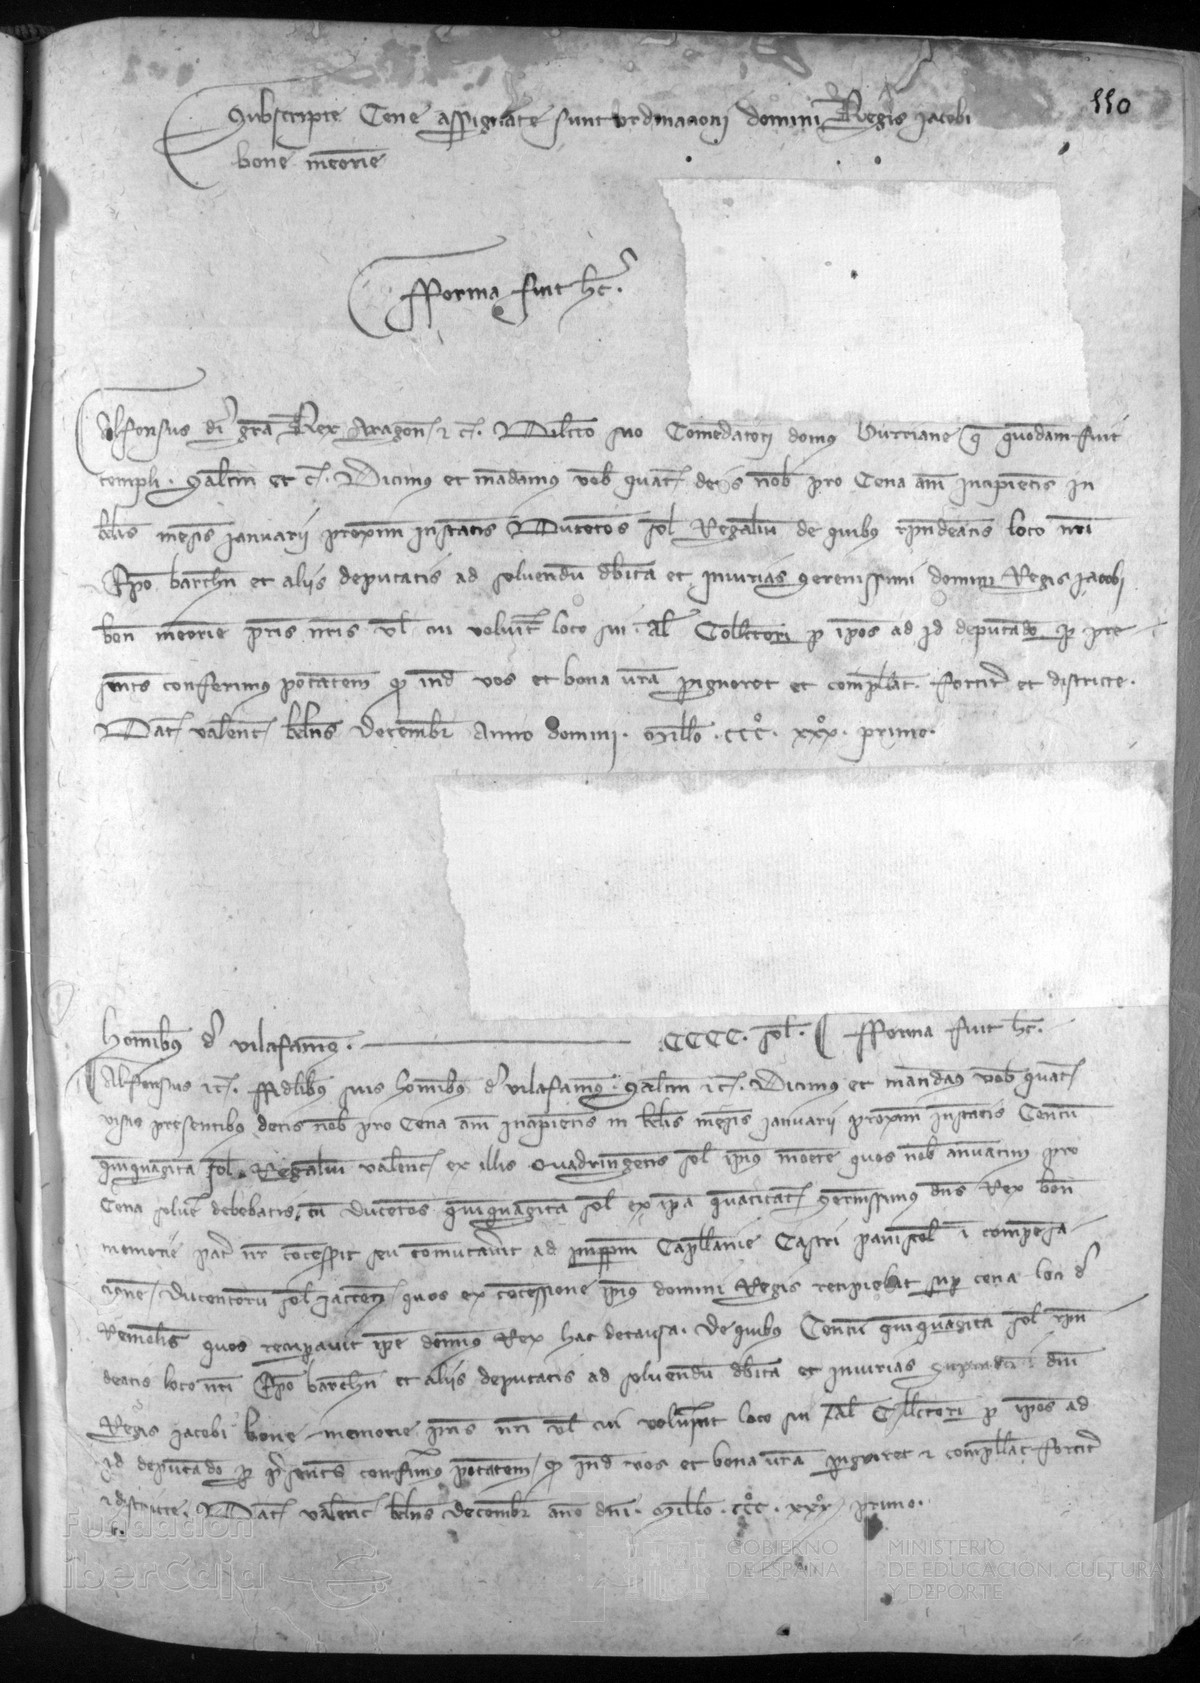 110
Subscripte Cene assignate sunt ordinacioni domini Regis Jacobi
bone memorie
Fforma fuit hec.
Alfonsus dei gra Rex Aragon et c. Dilecto suo Comendatori domus Burriane que quondam fuit
templi. Saltm et c. Dicimus et mandamus vob quat detis nob pro Cena anni incipientis in
klis mensis Januarii proxim instantis Ducentos sol Regalium de quibus respondeatis loco nri
Epo barchn et aliis deputatis ad solvendum debita et iniurias serenissimi domini Regis Jacobi
bon memorie pris nris vel cui voluit loco sui. Al Collectori p ipos ad id deputado p pre
sents conferimus potatem q ind vos et bona vra pignoret et compellat. fortit et districte.
Dat valent klns Decembr Anno domini. Millo. CCC. XXX. primo.
hominibus de vilafames. CCCC. sol. Fforma fuit hec.
Alfonsus et c. ffidelibus suis hominibus de vilafames. Saltm et c. Dicimus et mandamus vob quat
visis presentibus detis nob pro Cena anni incipientis in klis mensis Januarii proxim instantis Centum
quinquaginta sol Regalium valenc ex illis Quadringentis sol ipius monete quos nob annuatim pro
Cena solver debebatis, cum ducentos quinquaginta sol ex ipa quantitat serenissimus dns Rex bon
memorie pat nr concessit seu comutavit ad Capellanie Castri paniscol i compensa
cione ducentorum sol Jaccen quos ex concessione ipius domini Regis recipiebat sup cena loci de
quos recuperavit ipe dominus Rex hac de causa. De quibus Centum quinquaginta sol respon
deatis loco nri Epo barchn et aliis deputatis ad solvendum debita et iniurias dni
Regis Jacobi bone memorie pris nri vel cui voluint loco sui Al Collectori p ipos ad
id deputado p presents conferimus potatem q ind vos et bona vra pignoret et compellat fortit
et districte. Dat valent klns decembr ano dni. Millo. CCC. XXX primo.
Fundación
iberCaja
GOBIERNO
DE ESPAÑA
MINISTERIO
DE EDUCACIÓN, CULTURA
Y DEPORTE